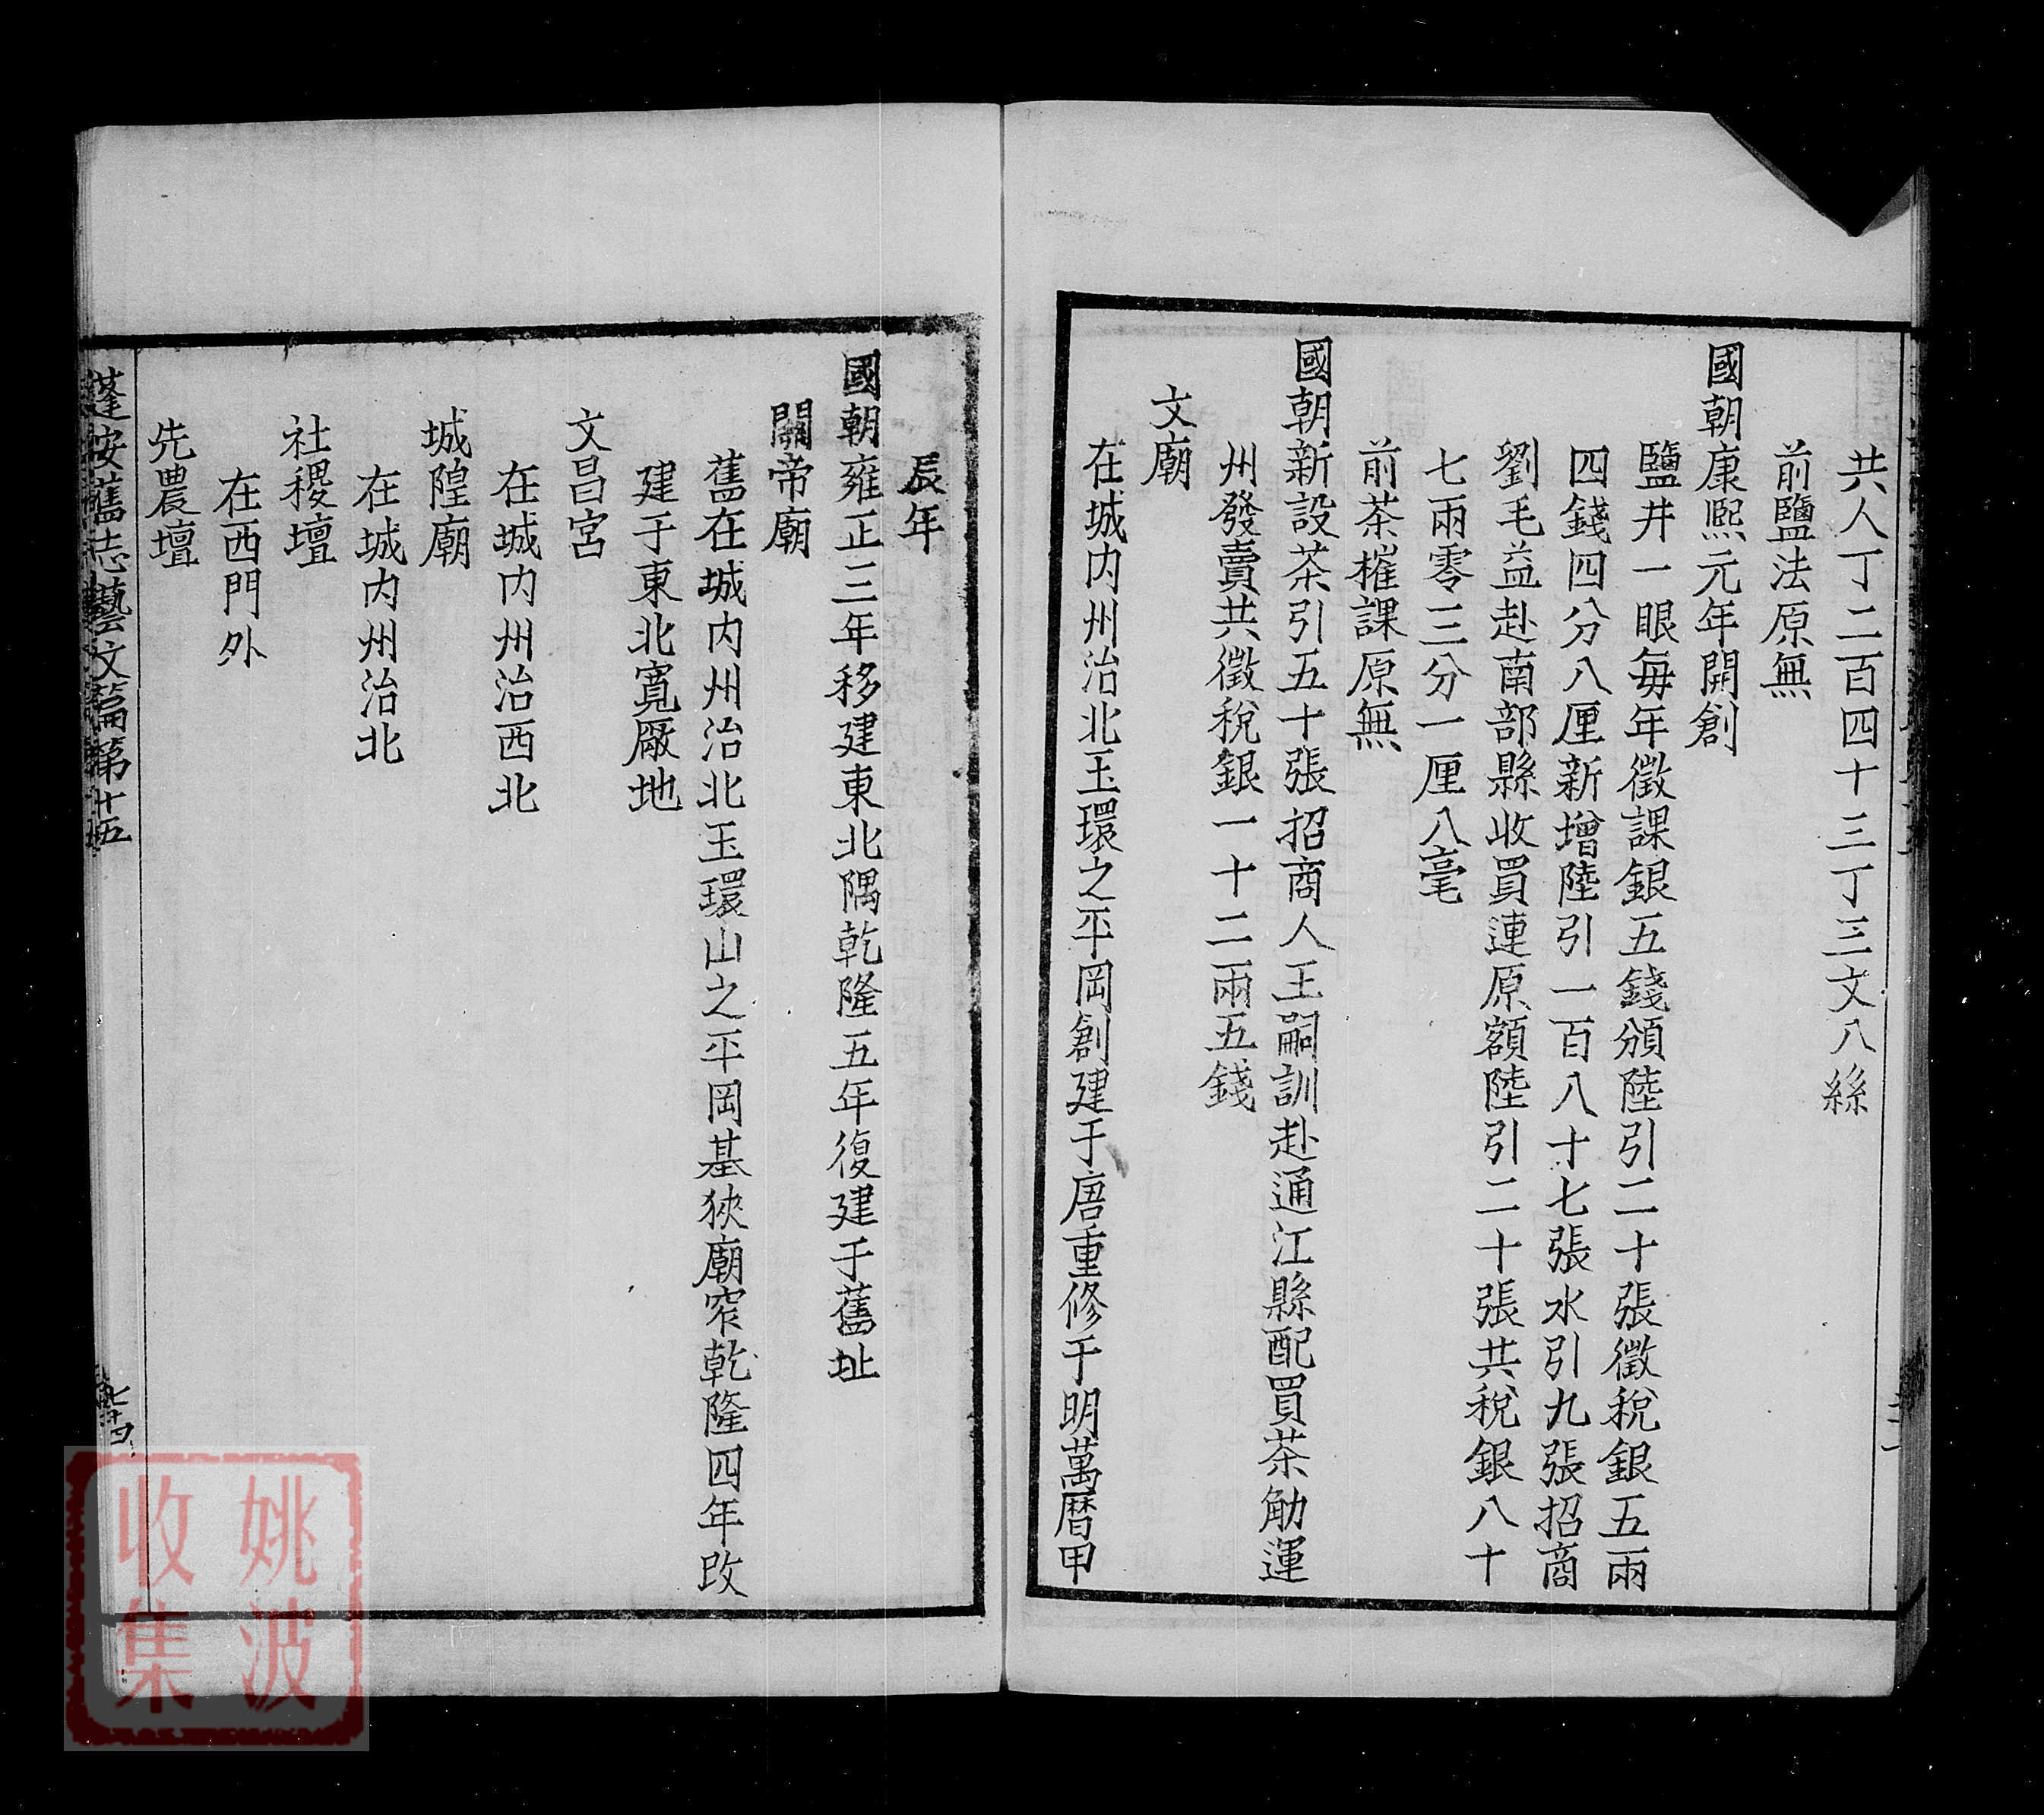 共人丁二百四十三丁三文八絲
前鹽法原無
國朝康熙元年開創
鹽井一眼每年徵課銀五錢頒陸引二十張徵稅銀五兩
四錢四分八厘新增陸引一百八十七張水引九張招商
劉毛益赴南部縣收買連原額陸引二十張共稅銀八十
七兩零三分一厘八毫
前茶榷課原無
國朝新設茶引五十張招商人王嗣訓赴通江縣配買茶觔運
州發賣共徵稅銀一十二兩五錢
文廟
在城內州治北玉環之平岡創建于唐重修于明萬曆甲
辰年
國朝雍正三年移建東北隅乾隆五年復建于舊址
關帝廟
舊在城內州治北玉環山之平岡基狹廟窄乾隆四年改
建于東北寬厰地
文昌宮
在城內州治西北
城隍廟
在城內州治北
社稷壇
在西門外
先農壇
蓬安舊志藝文篇第十五
七十四
姚波
收集